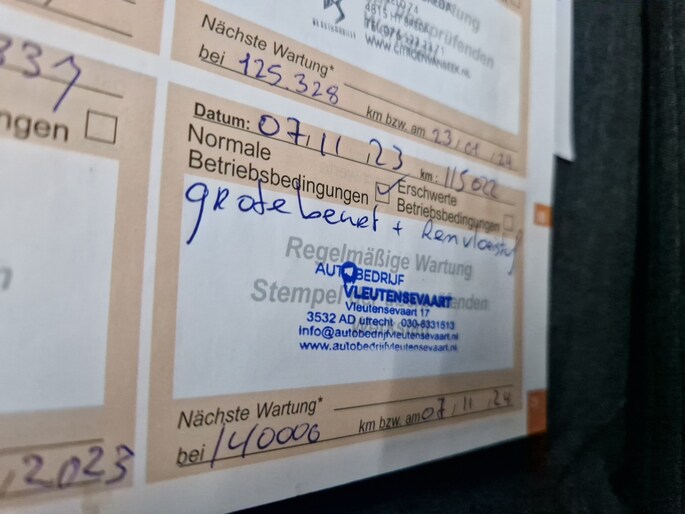 Nächste Wartung*
bei 125.328 km bzw. am 23,01,24
WWW.CITROENVANBEEK.NL
ngen
Datum: 07,11,23 km: 115022
Normale
Betriebsbedingungen
Erschwerte
Betriebsbedingungen
grote beurt + Remvloeistof
Regelmäßige Wartung
Stempel
AUTOBEDRIJF
VLEUTENSEVAART
Vleutensevaart 17
3532 AD utrecht 030-6331513
info@autobedrijfvleutensevaart.nl
www.autobedrijfvleutensevaart.nl
Nächste Wartung*
bei 140006 km bzw. am 07,11,24
,2023